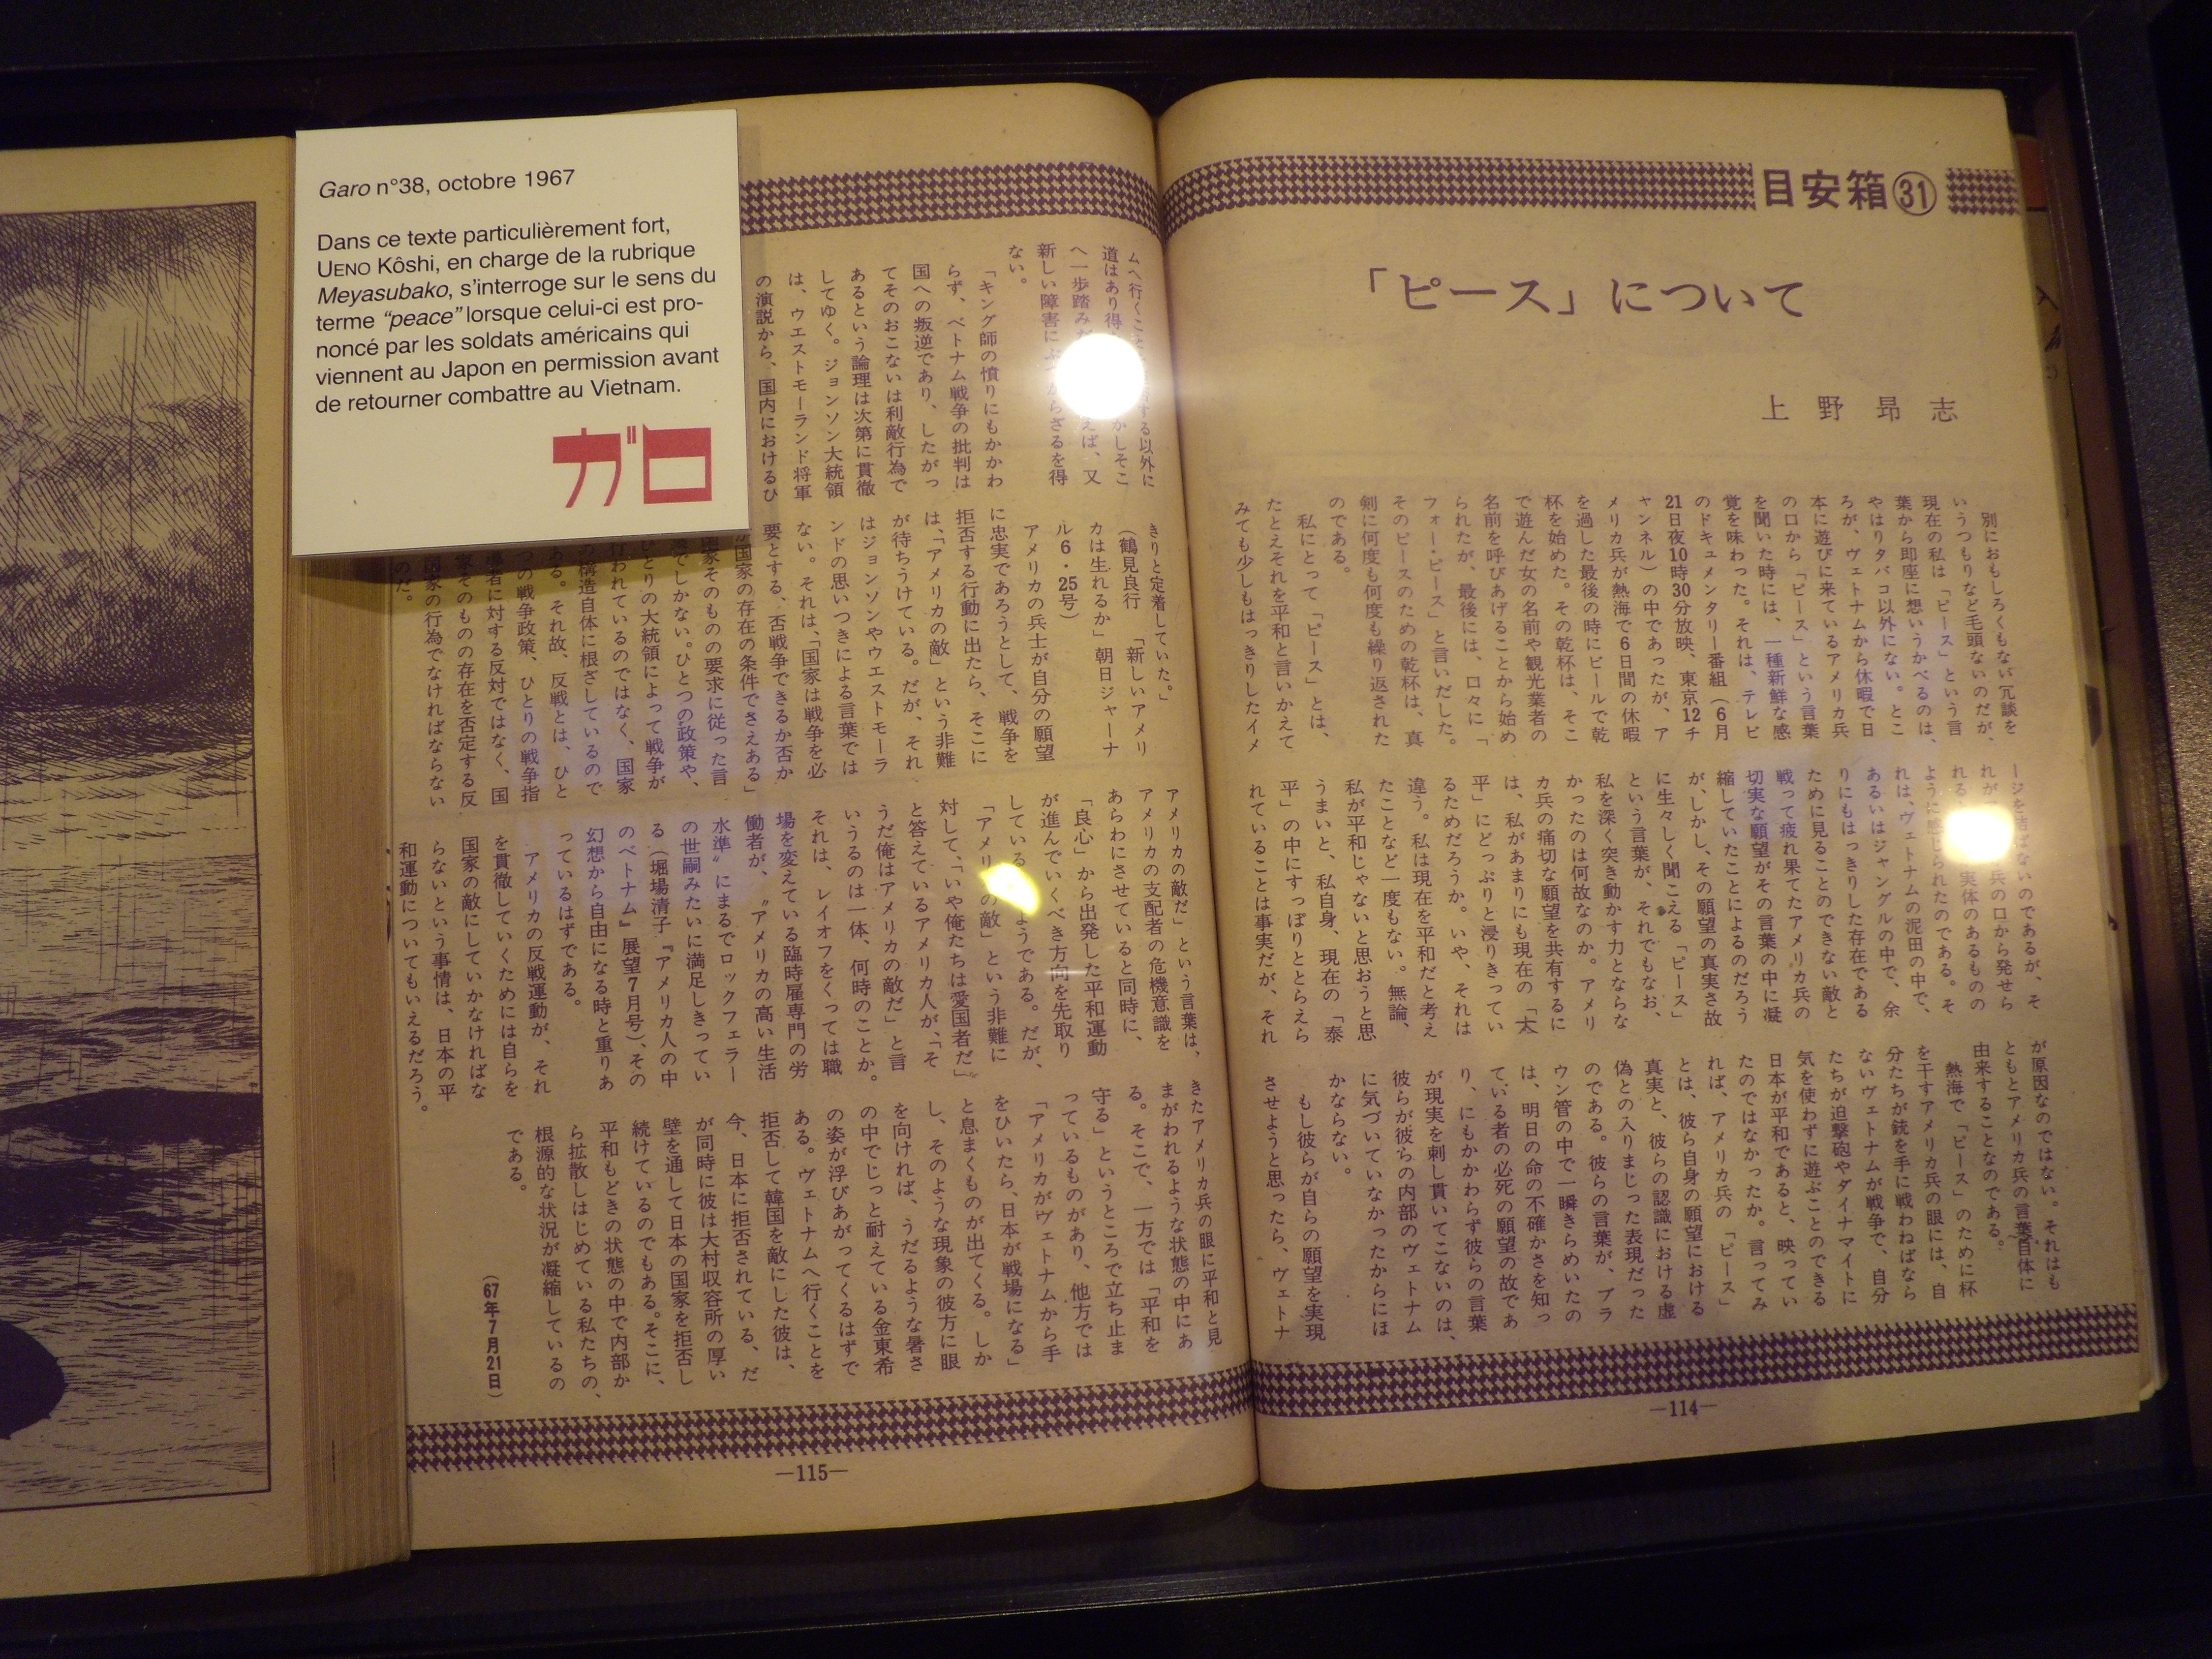 Garo n°38, octobre 1967
Dans ce texte particulièrement fort,
UENO Kôshi, en charge de la rubrique
Meyasubako, s'interroge sur le sens du
terme “peace” lorsque celui-ci est pro-
noncé par les soldats américains qui
viennent au Japon en permission avant
de retourner combattre au Vietnam.
ガロ
目安箱㉛
「ピース」について
上野昻志
別におもしろくもない冗談を
いうつもりなど毛頭ないのだが、
現在の私は「ピース」という言
葉から即座に想いうかべるのは、
やはりタバコ以外にない。とこ
ろが、ヴェトナムから休暇で日
本に遊びに来ているアメリカ兵
の口から「ピース」という言葉
を聞いた時には、一種新鮮な感
覚を味わった。それは、テレビ
のドキュメンタリー番組（6月
21日夜10時30分放映、東京12チ
ャンネル）の中であったが、ア
メリカ兵が熱海で6日間の休暇
を過した最後の時にビールで乾
杯を始めた。その乾杯は、そこ
で遊んだ女の名前や観光業者の
名前を呼びあげることから始め
られたが、最後には、口々に「
フォー・ピース」と言いだした。
そのピースのための乾杯は、真
剣に何度も何度も繰り返された
のである。
私にとって「ピース」とは、
たとえそれを平和と言いかえて
みても少しもはっきりしたイメ
ージを結ばないのであるが、そ
れが 兵の口から発せら
れる 実体のあるものの
ように感じられたのである。そ
れは、ヴェトナムの泥田の中で、
あるいはジャングルの中で、余
りにもはっきりした存在である
ために見ることのできない敵と
戦って疲れ果てたアメリカ兵の
切実な願望がその言葉の中に凝
縮していたことによるのだろう
が、しかし、その願望の真実さ故
に生々しく聞こえる「ピース」
という言葉が、それでもなお、
私を深く突き動かす力とならな
かったのは何故なのか。アメリ
カ兵の痛切な願望を共有するに
は、私があまりにも現在の「太
平」にどっぷりと浸りきってい
るためだろうか。いや、それは
違う。私は現在を平和だと考え
たことなど一度もない。無論、
私が平和じゃないと思おうと思
うまいと、私自身、現在の「泰
平」の中にすっぽりととらえら
れていることは事実だが、それ
が原因なのではない。それはも
ともとアメリカ兵の言葉自体に
由来することなのである。
熱海で「ピース」のために杯
を干すアメリカ兵の眼には、自
分たちが銃を手に戦わねばなら
ないヴェトナムが戦争で、自分
たちが迫撃砲やダイナマイトに
気を使わずに遊ぶことのできる
日本が平和であると、映ってい
たのではなかったか。言ってみ
れば、アメリカ兵の「ピース」
とは、彼ら自身の願望における
真実と、彼らの認識における虚
偽との入りまじった表現だった
のである。彼らの言葉が、ブラ
ウン管の中で一瞬きらめいたの
は、明日の命の不確かさを知っ
ている者の必死の願望の故であ
り、にもかかわらず彼らの言葉
が現実を刺し貫いてこないのは、
彼らが彼らの内部のヴェトナム
に気づいていなかったからにほ
かならない。
もし彼らが自らの願望を実現
させようと思ったら、ヴェトナ
―114―
ムへ行くこと する以外に
道はあり得 かしそこ
へ一歩踏み えば、又
新しい障害にぶつからざるを得
ない。
「キング師の憤りにもかかわ
らず、ベトナム戦争の批判は
国への叛逆であり、したがっ
てそのおこないは利敵行為で
あるという論理は次第に貫徹
してゆく。ジョンソン大統領
は、ウエストモーランド将軍
の演説から、国内におけるひ
きりと定着していた。」
（鶴見良行 「新しいアメリ
カは生れるか」朝日ジャーナ
ル6・25号）
アメリカの兵士が自分の願望
に忠実であろうとして、戦争を
拒否する行動に出たら、そこに
は、「アメリカの敵」という非難
が待ちうけている。だが、それ
はジョンソンやウエストモーラ
ンドの思いつきによる言葉では
ない。それは、「国家は戦争を必
要とする、否戦争できるか否か
が国家の存在の条件でさえある」
国家そのものの要求に従った言
葉でしかない。ひとつの政策や、
ひとりの大統領によって戦争が
行われているのではなく、国家
の構造自体に根ざしているので
ある。それ故、反戦とは、ひと
つの戦争政策、ひとりの戦争指
導者に対する反対ではなく、国
家そのものの存在を否定する反
国家の行為でなければならない
のだ。
アメリカの敵だ」という言葉は、
アメリカの支配者の危機意識を
あらわにさせていると同時に、
「良心」から出発した平和運動
が進んでいくべき方向を先取り
している ようである。だが、
「アメリカの敵」という非難に
対して、「いや俺たちは愛国者だ」
と答えているアメリカ人が、「そ
うだ俺はアメリカの敵だ」と言
いうるのは一体、何時のことか。
それは、レイオフをくっては職
場を変えている臨時雇専門の労
働者が、〝アメリカの高い生活
水準〟にまるでロックフェラー
の世嗣みたいに満足しきってい
る（堀場清子『アメリカ人の中
のベトナム』展望7月号）、その
幻想から自由になる時と重りあ
っているはずである。
アメリカの反戦運動が、それ
を貫徹していくためには自らを
国家の敵にしていかなければな
らないという事情は、日本の平
和運動についてもいえるだろう。
きたアメリカ兵の眼に平和と見
まがわれるような状態の中にあ
る。そこで、一方では「平和を
守る」というところで立ち止ま
っているものがあり、他方では
「アメリカがヴェトナムから手
をひいたら、日本が戦場になる」
と息まくものが出てくる。しか
し、そのような現象の彼方に眼
を向ければ、うだるような暑さ
の中でじっと耐えている金東希
の姿が浮びあがってくるはずで
ある。ヴェトナムへ行くことを
拒否して韓国を敵にした彼は、
今、日本に拒否されている、だ
が同時に彼は大村収容所の厚い
壁を通して日本の国家を拒否し
続けているのでもある。そこに、
平和もどきの状態の中で内部か
ら拡散しはじめている私たちの、
根源的な状況が凝縮しているの
である。
（67年7月21日）
―115―